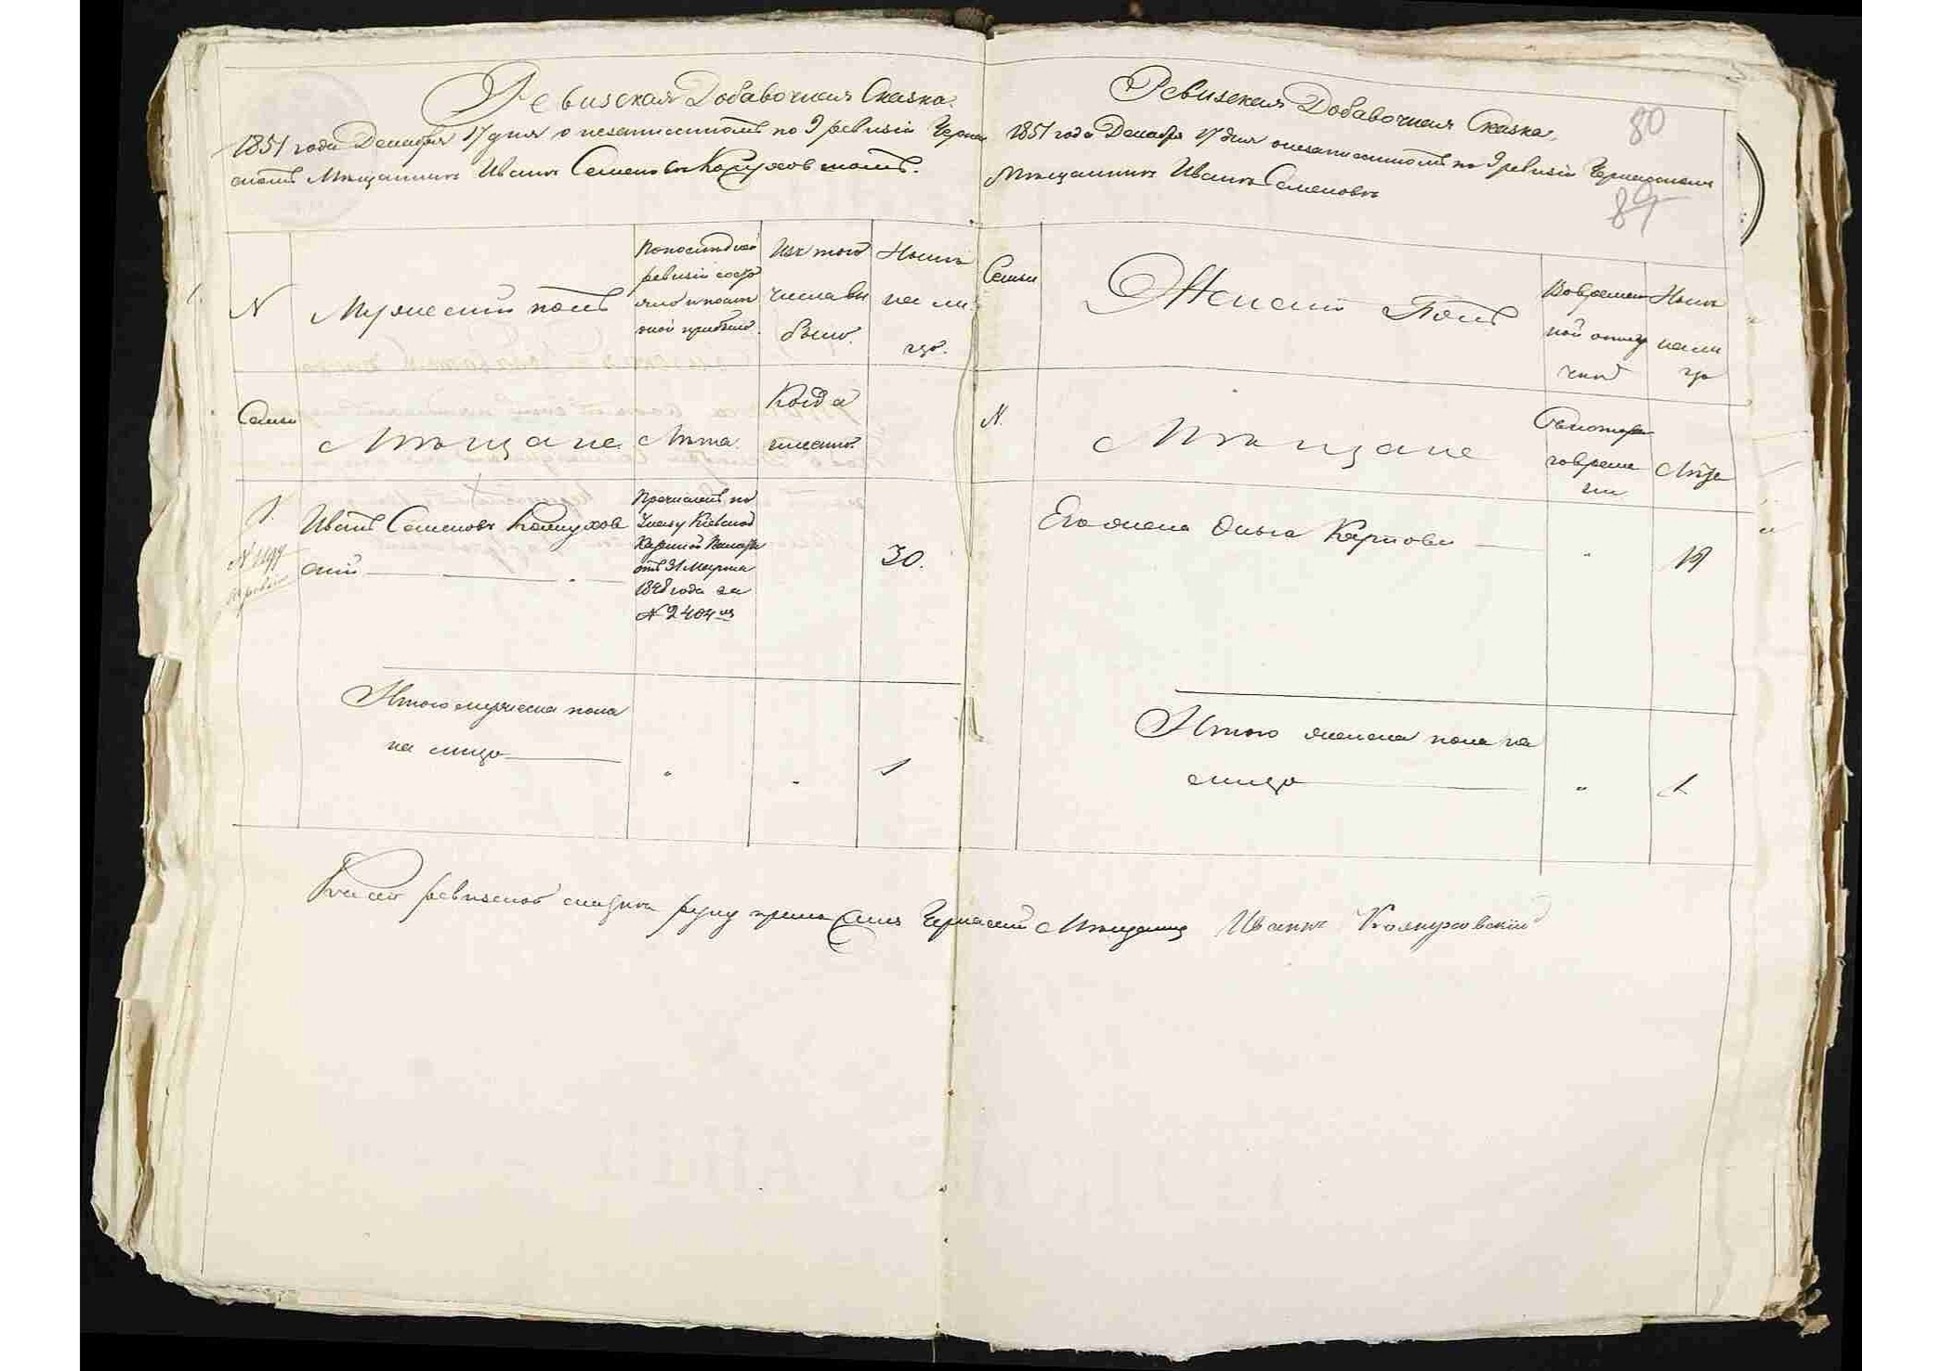 Ревизская Добавочная Сказка.
1851 года Декабря 17 дня о незаписанномъ по 9 ревизіи Черкас
скомъ Мѣщанинѣ Иванѣ Семеновѣ Кожуховскомъ.
N
Мужескій полъ
По последней
ревизіи состо
яло и после
оной прибыло.
Изъ того
числа вы
было.
Нынѣ
на ли
цо.
Семьи
Мѣщане
Лѣта.
Когда
именно
1.
N 1199
Иванъ Семеновъ Кожухов
скій
Причисленъ по
Указу Кіевской
Казенной Палаты
отъ 31 Марта
1848 года за
N 2404
30.
Итого мужеска пола
на лицо
"
"
1
Ревизская Добавочная Сказка,
1851 года Декабря 17 дня о незаписанномъ по 9 ревизіи Черкасскомъ
Мѣщанинѣ Иванѣ Семеновѣ
80
89
Семьи
Женскій Полъ
Во времен
ной отлу
чкѣ
Нынѣ
на ли
цо
N.
Мѣщане
Съ котора
го време
ни
Лѣта
Его жена Ольга Карпова
"
19
Итого женска пола на
лицо
"
1
К сей ревизской сказкѣ руку приложилъ Черкаскій Мѣщанинъ Иванъ Кожуховскій